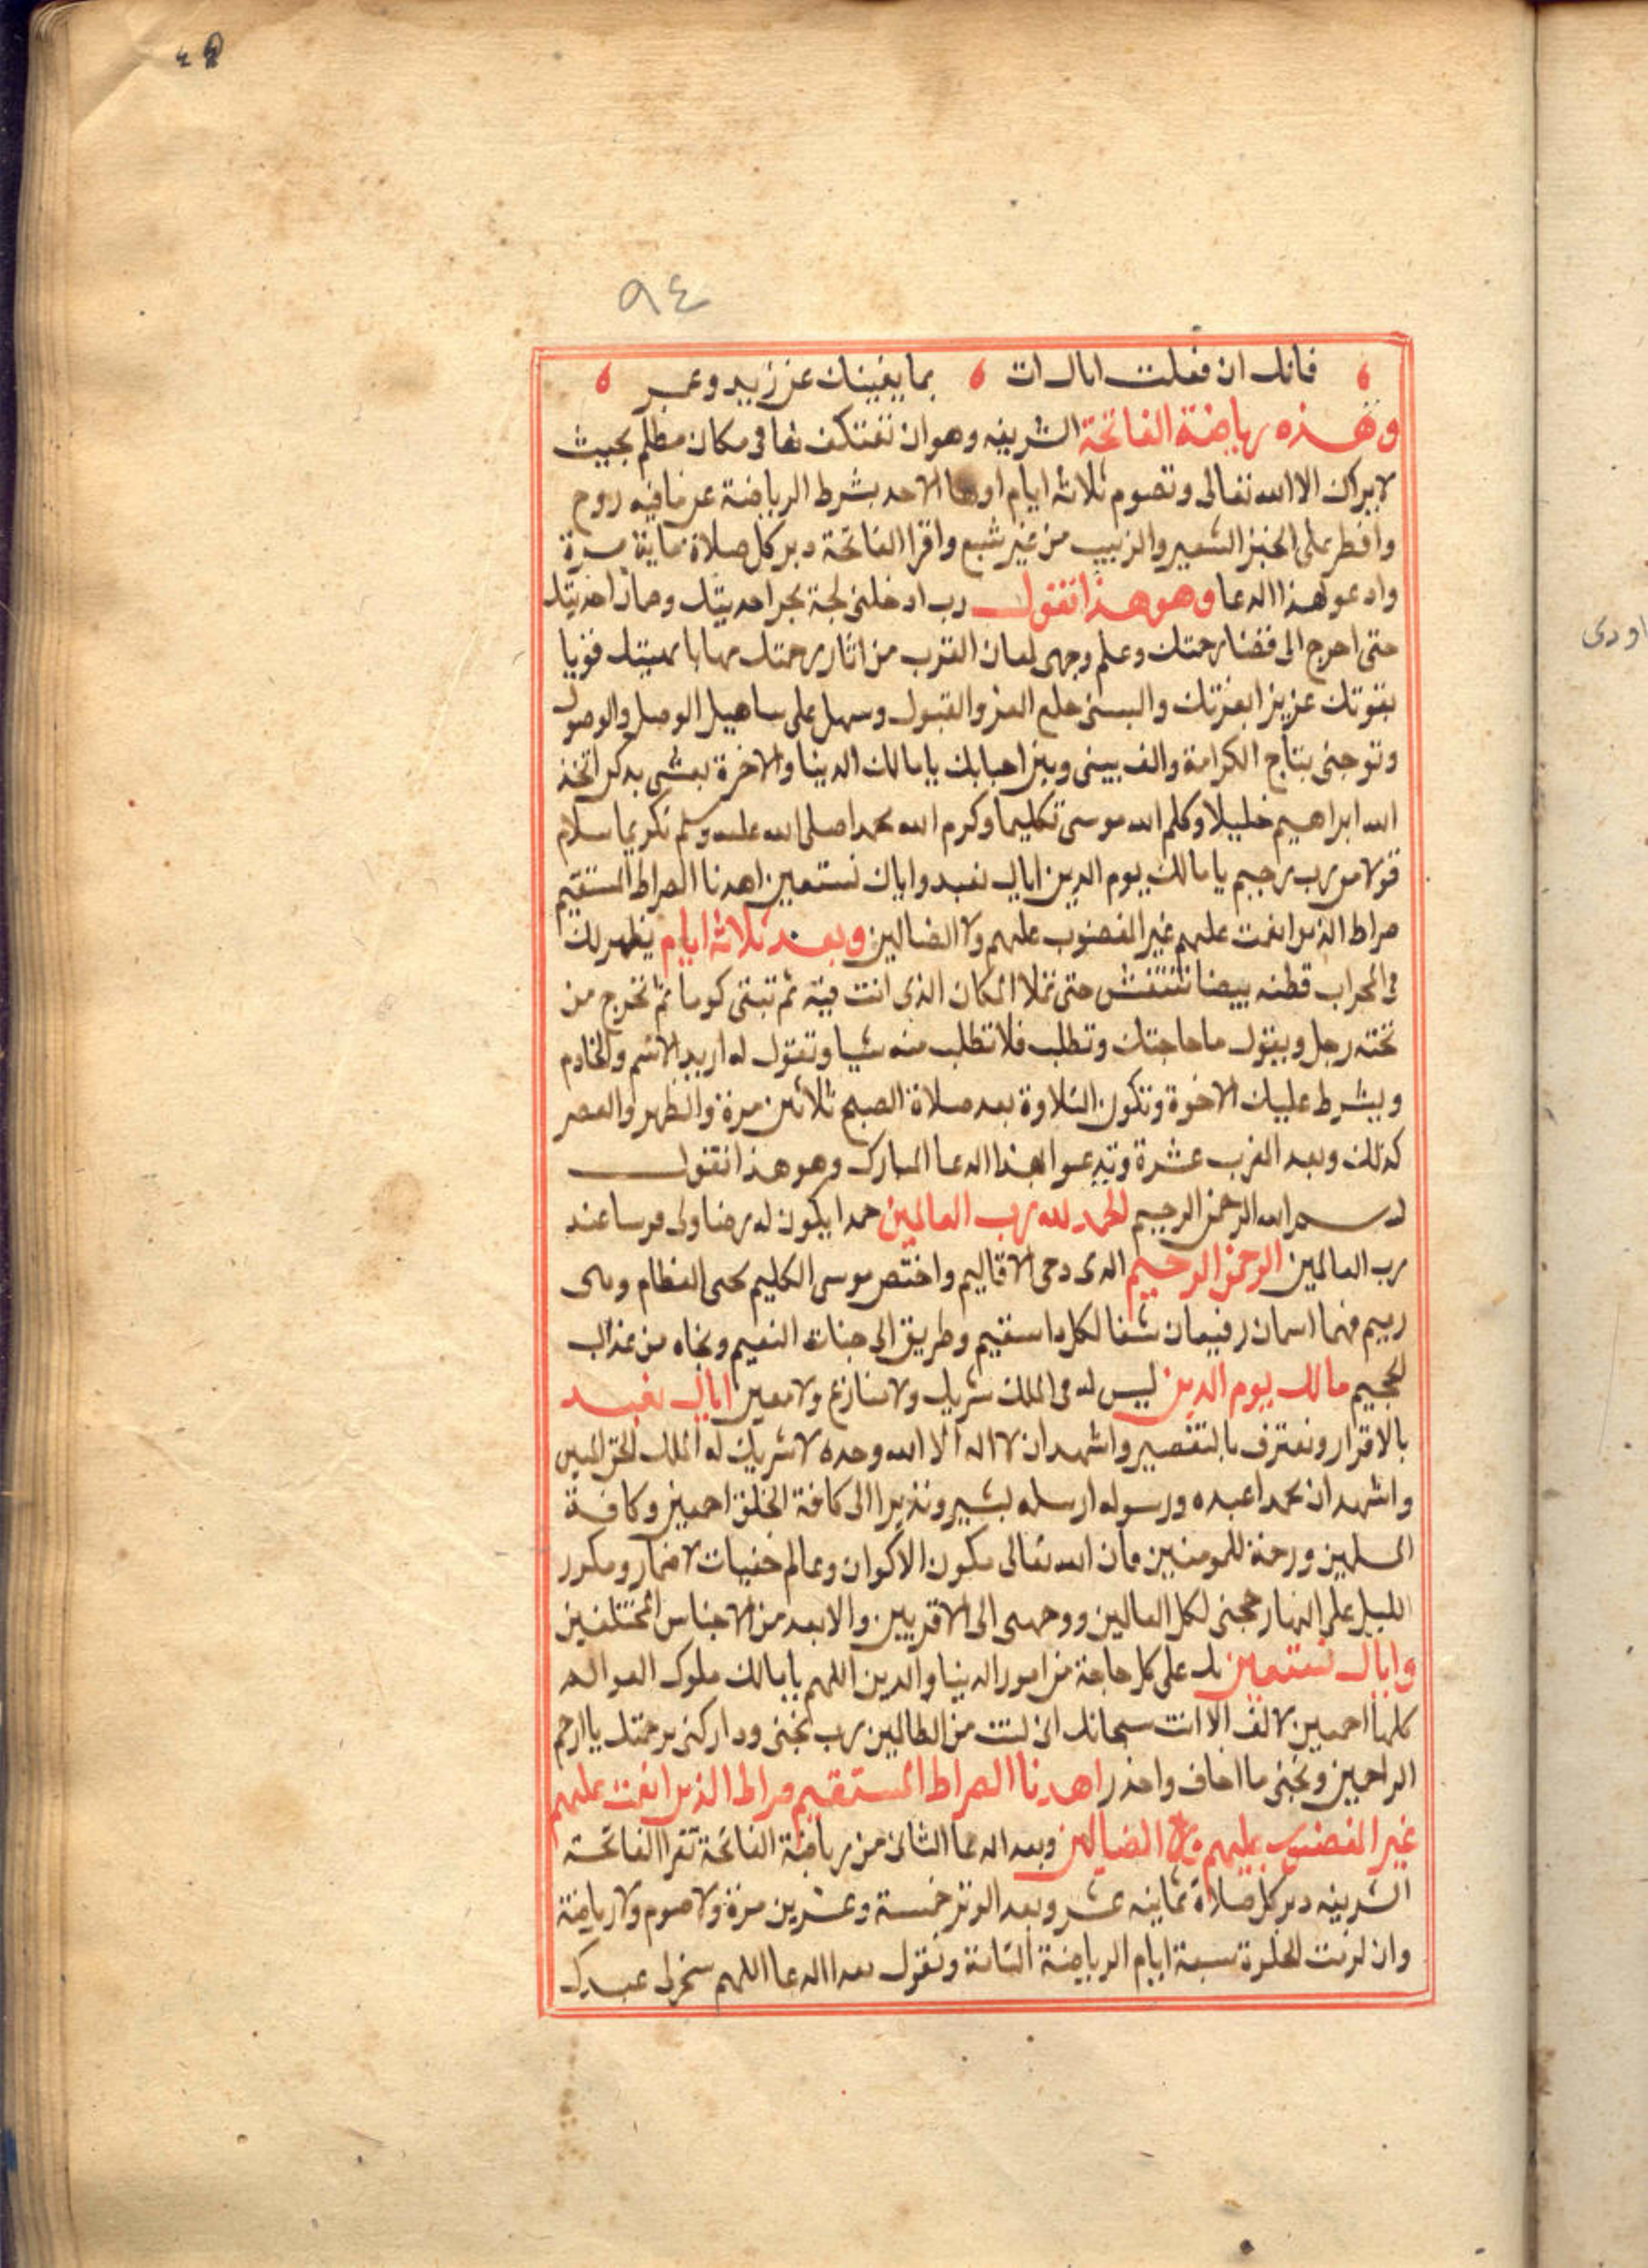 ٩٤
فانك ان فعلت اباك ات بما يغنيك عن زيد وعمر
وهذه رياضة الفاتحة الشريفه وهو ان تعتكف بها فى مكان مظلم بحيث
لا يراك الا الله تعالى وتصوم ثلاثه ايام اولها الاحد بشرط الرياضة عن ما فيه روح
وافطر على الخبز الشعير والزبيب من غير شبع واقرا الفاتحة دبر كل صلاة ماية مرة
وادعو لهذا الدعا وهو هذا تقول رب ادخلنى لجة بحر احديتك وصاز احديتك
حتى اخرج الى فضا رحمتك وعلم وجهى لمعان القرب من اثار رحمتك مهابا بهيبتك قويا
بقوتك عزيزا بعزتك والبسنى خلع العز والقبول وسهل على ساهيل الوصل والوصول
وتوجنى بتاج الكرامة والف بينى وبين احبابك يا مالك الدنيا والاخرة اتخذ
الله ابراهيم خليلا وكلم الله موسى تكليما وكرم الله محمدا صلى الله عليه وسلم تكريما سلام
قولا من رب رحيم يا مالك يوم الدين اياك نعبد واياك نستعين اهدنا الصراط المستقيم
صراط الذين انعمت عليهم غير المغضوب عليهم ولا الضالين وبعد ثلاثه ايام يظهر لك
فى المحراب قطنه بيضا تنتفش حتى تملا المكان الذى انت فيه ثم تبقى كوما ثم تخرج من
تحته رجل ويقول ما حاجتك وتطلب فلا تطلب منه شيا وتقول له اريد الاسم والخادم
ويشرط عليك الاخوة وتكون التلاوة بعد صلاة الصبح ثلاثين مرة والظهر والعصر
كذلك وبعد المغرب عشرة وتدعوا بهذا الدعا المبارك وهو هذا تقول
بسم الله الرحمن الرحيم الحمد لله رب العالمين حمدا يكون له رضا ولى عند
رب العالمين الرحمن الرحيم الذى دحى الاقاليم واختص موسى الكليم محى العظام وهى
رميم فهما اسمان رفيعان شفا لكل داسقيم وطريق الى جنات النعيم ونجاه من عذاب
الجحيم مالك يوم الدين ليس له فى الملك شريك ولا منازع ولا معين اياك نعبد
بالاقرار ونعترف بالتقصير واشهد ان لا اله الا الله وحده لا شريك له الملك الحق المبين
واشهد ان محمدا عبده ورسوله ارسله بشير ونذيرا الى كافة الخلق اجمعين وكافة
المسلمين ورحمة للمومنين مان الله تعالى مكون الاكوان وعالم خفيات لاضمار ومكور
الليل على النهار حجنى لكل العالمين ووجهى الى الاقربين والابعد من الاجناس المختلفين
واياك نستعين بك على كل حاجة من امور الدنيا والدين اللهم يا مالك ملوك العوالم
كلها اجمعين لا اله الا انت سبحانك انى كنت من الظالمين رب نجنى وداركنى برحمتك يا ارحم
الراحمين ونجنى ما اخاف واحذر اهدنا الصراط المستقيم صراط الذين انعمت عليهم
غير المغضوب عليهم ولا الضالين وبعد الدعا الثانى من رياضة الفاتحة تقرا الفاتحة
الشريفه دبر كل صلاة ثمانيه عشر وبعد الوتر خمسة وعشرين مرة ولا صوم ولا رياضة
وان لزمت الخلوة سبعة ايام الرياضة الثامنة وتقول بعد الدعا اللهم سخر لى عبدك